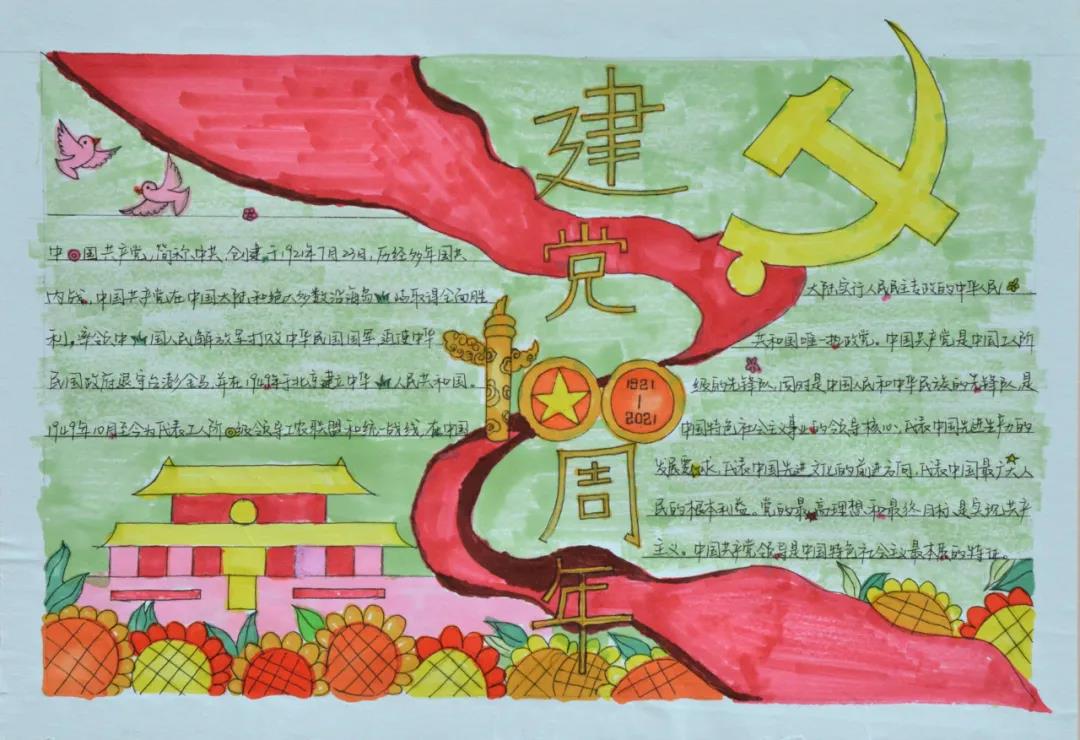 建
党
100
1921
|
2021
周
年
中国共产党,简称中共,创建于1921年7月23日,历经多年国共
内战,中国共产党在中国大陆和绝大多数沿海岛取得全面胜
利,率领中国人民解放军打败中华民国国军,迫使中华
民国政府退守台澎金马,并在1949年于北京建立中华人民共和国。
1949年10月至今为代表工人阶级领导工农联盟和统一战线,在中国
大陆实行人民民主专政的中华人民
共和国唯一执政党。中国共产党是中国工人阶
级的先锋队,同时是中国人民和中华民族的先锋队,是
中国特色社会主义事业的领导核心,代表中国先进生产力的
发展要求,代表中国先进文化的前进方向,代表中国最广大人
民的根本利益。党的最高理想和最终目标是实现共产
主义。中国共产党领导是中国特色社会主义最本质的特征。